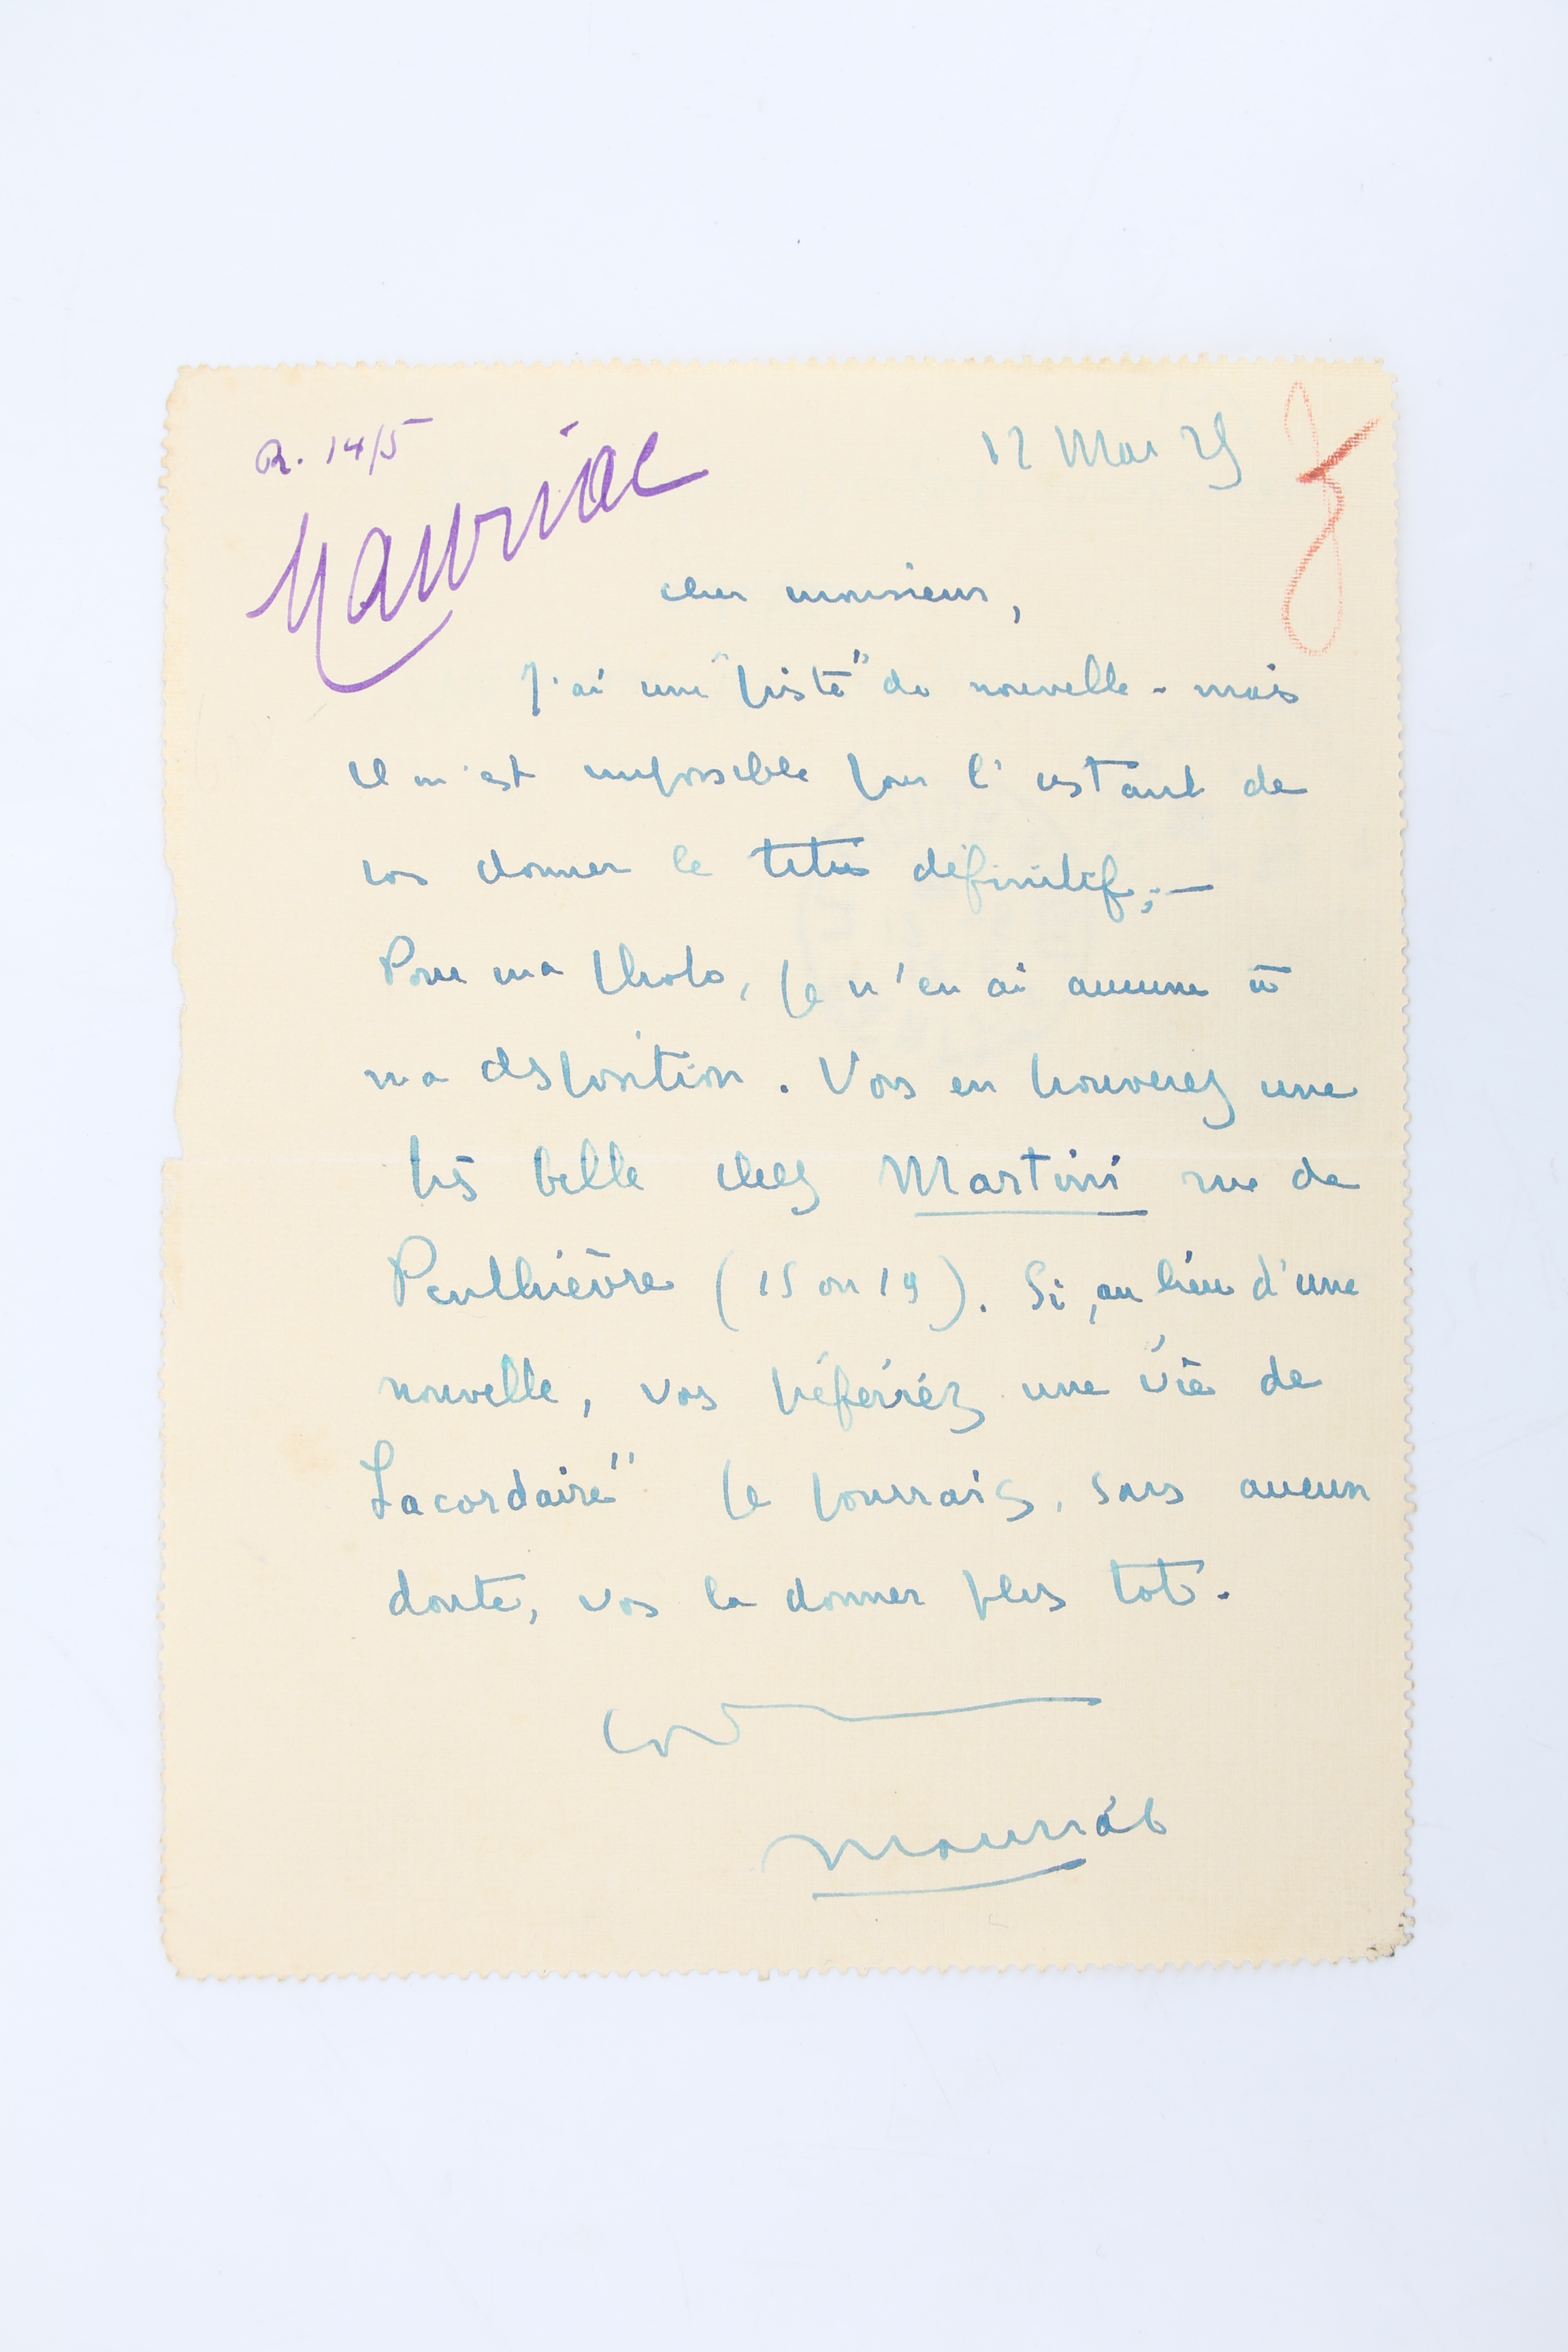 R. 14/5
Mauriac
12 Mai 25
cher monsieur,
J'ai une "piste" de nouvelle - mais
il m'est impossible pour l'instant de
vous donner le titre définitif; —
Pour ma photo, je n'en ai aucune à
ma disposition. Vous en trouverez une
très belle chez Martini rue de
Penthièvre (15 ou 19). Si, au lieu d'une
nouvelle, vous préfériez une "vie de
Lacordaire" je pourrais, sans aucun
doute, vous la donner plus tôt.
Mauriac